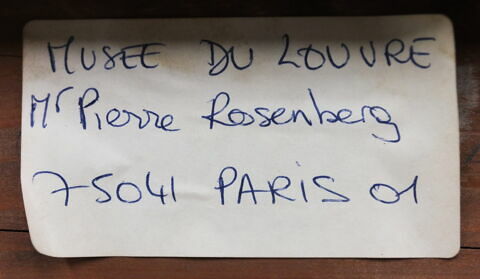 MUSEE DU LOUVRE
Mr Pierre Rosenberg
75041 PARIS 01